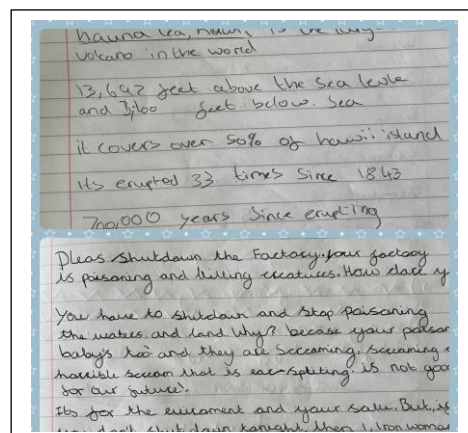 in the
volcano in the world
13,642 feet above the sea levle
and 3,100 feet below. Sea
it covers over 50% of hawii island
its erupted 33 times since 1843
700,000 years since erupting
Pleas shutdown the Factory. your factory
is poisoning and killing creatures. How dare
You have to shutdown and stop poisoning
the waters and land Why? becase your poison
babys too and they are Screaming. Screaming
horrible scream that is ear-spliting. is not
for our future!.
Its for the and your sake. But, if
you don't shut down tonight then I, Iron woman